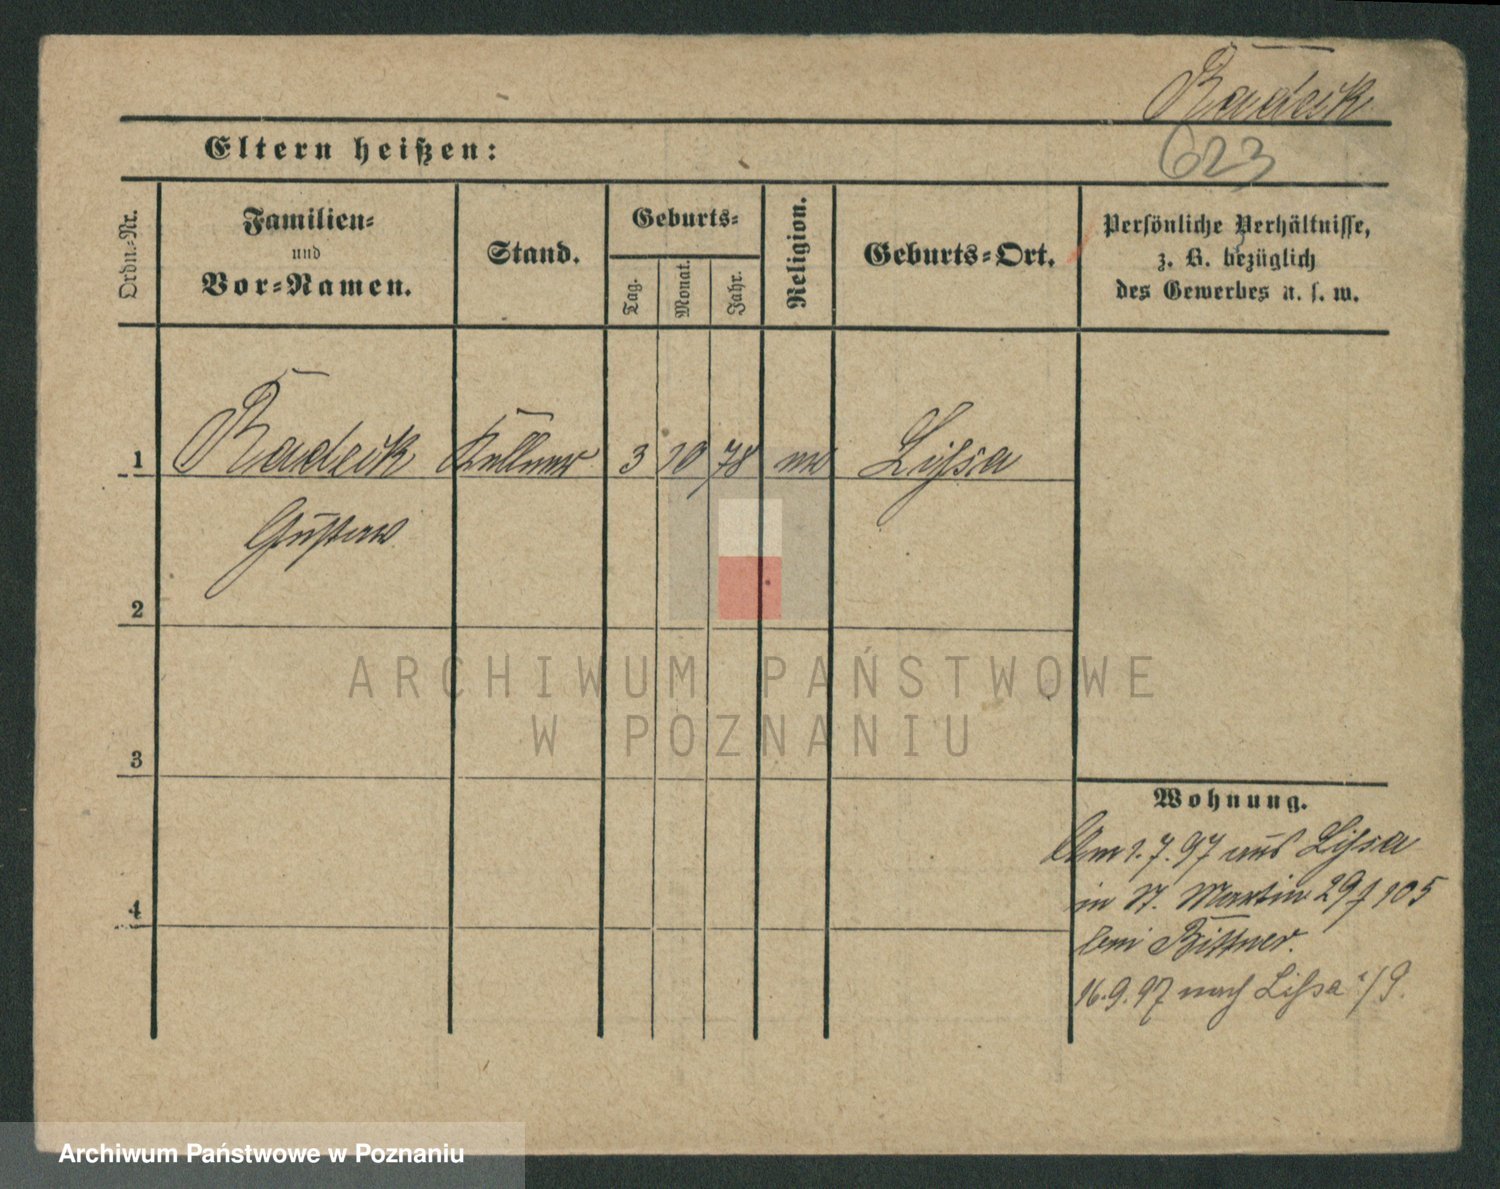 Radeck
623
Eltern heißen:
Ordn.-Nr.
Familien-
und
Vor-Namen.
Stand.
Geburts-
Tag.
Monat.
Jahr.
Religion.
Geburts-Ort.
Persönliche Verhältnisse,
z. B. bezüglich
des Gewerbes u. s. w.
1 Radeck Kellner 3 10 78 Lissa
Gustav
2
ARCHIWUM PAŃSTWOWE
W POZNANIU
3
Wohnung.
1.7.97 aus Lissa
in St. Martin 29 105
bei Bittner.
4
16.9.97 nach Lissa /9.
Archiwum Państwowe w Poznaniu